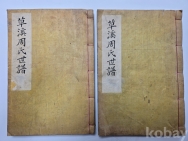 草溪周氏世譜
草溪周氏世譜
kobay